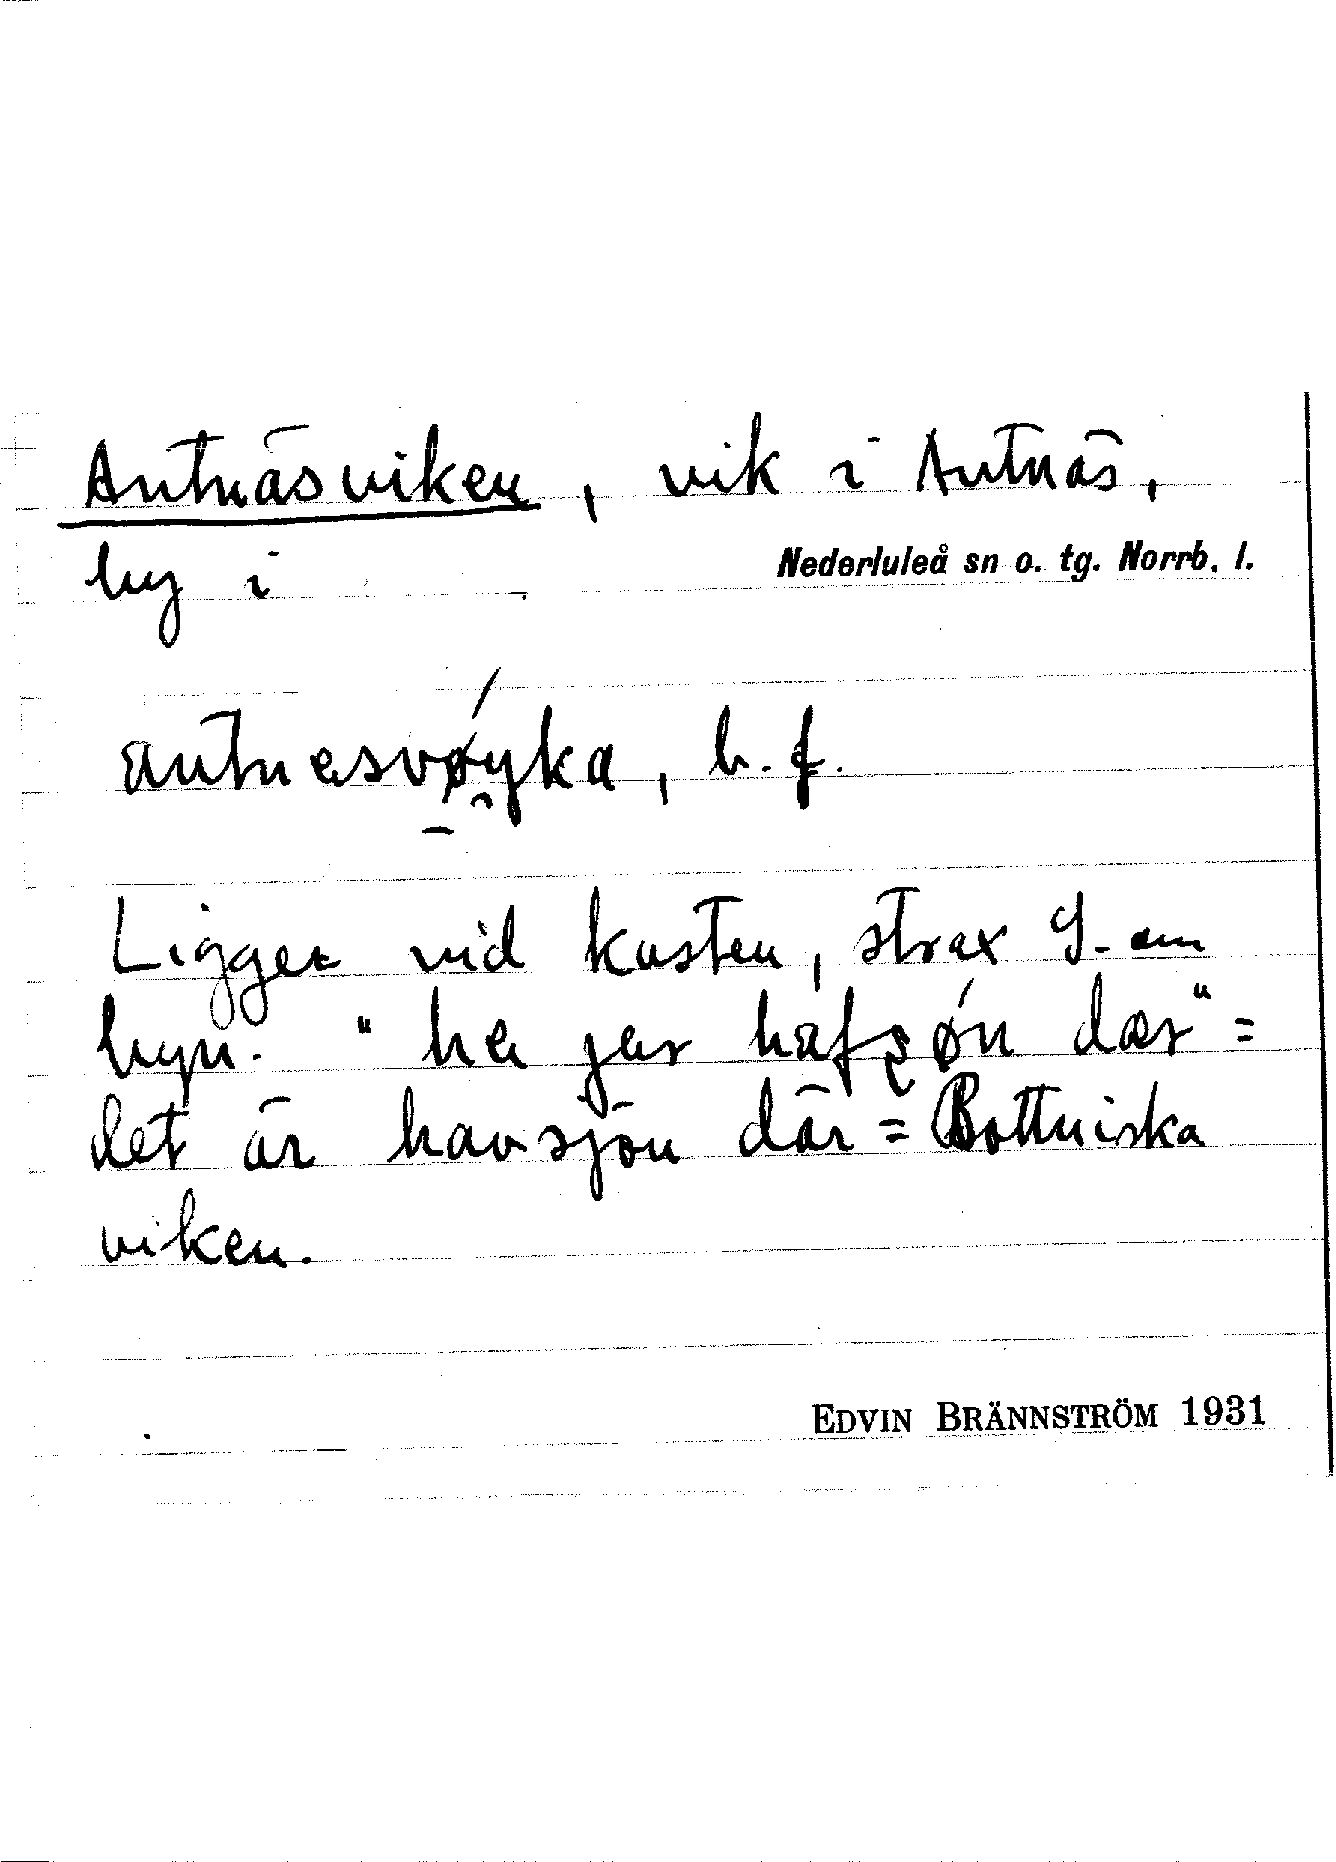 Antnäsviken, vik i Antnäs,
by i Nederluleå sn o. tg. Norrb. l.
antnesvøyka, b. f.
Ligger vid kusten, strax S. om
byn. "he jer hafsøn dær" =
det är havsjön där = Bottniska
viken.
EDVIN BRÄNNSTRÖM 1931